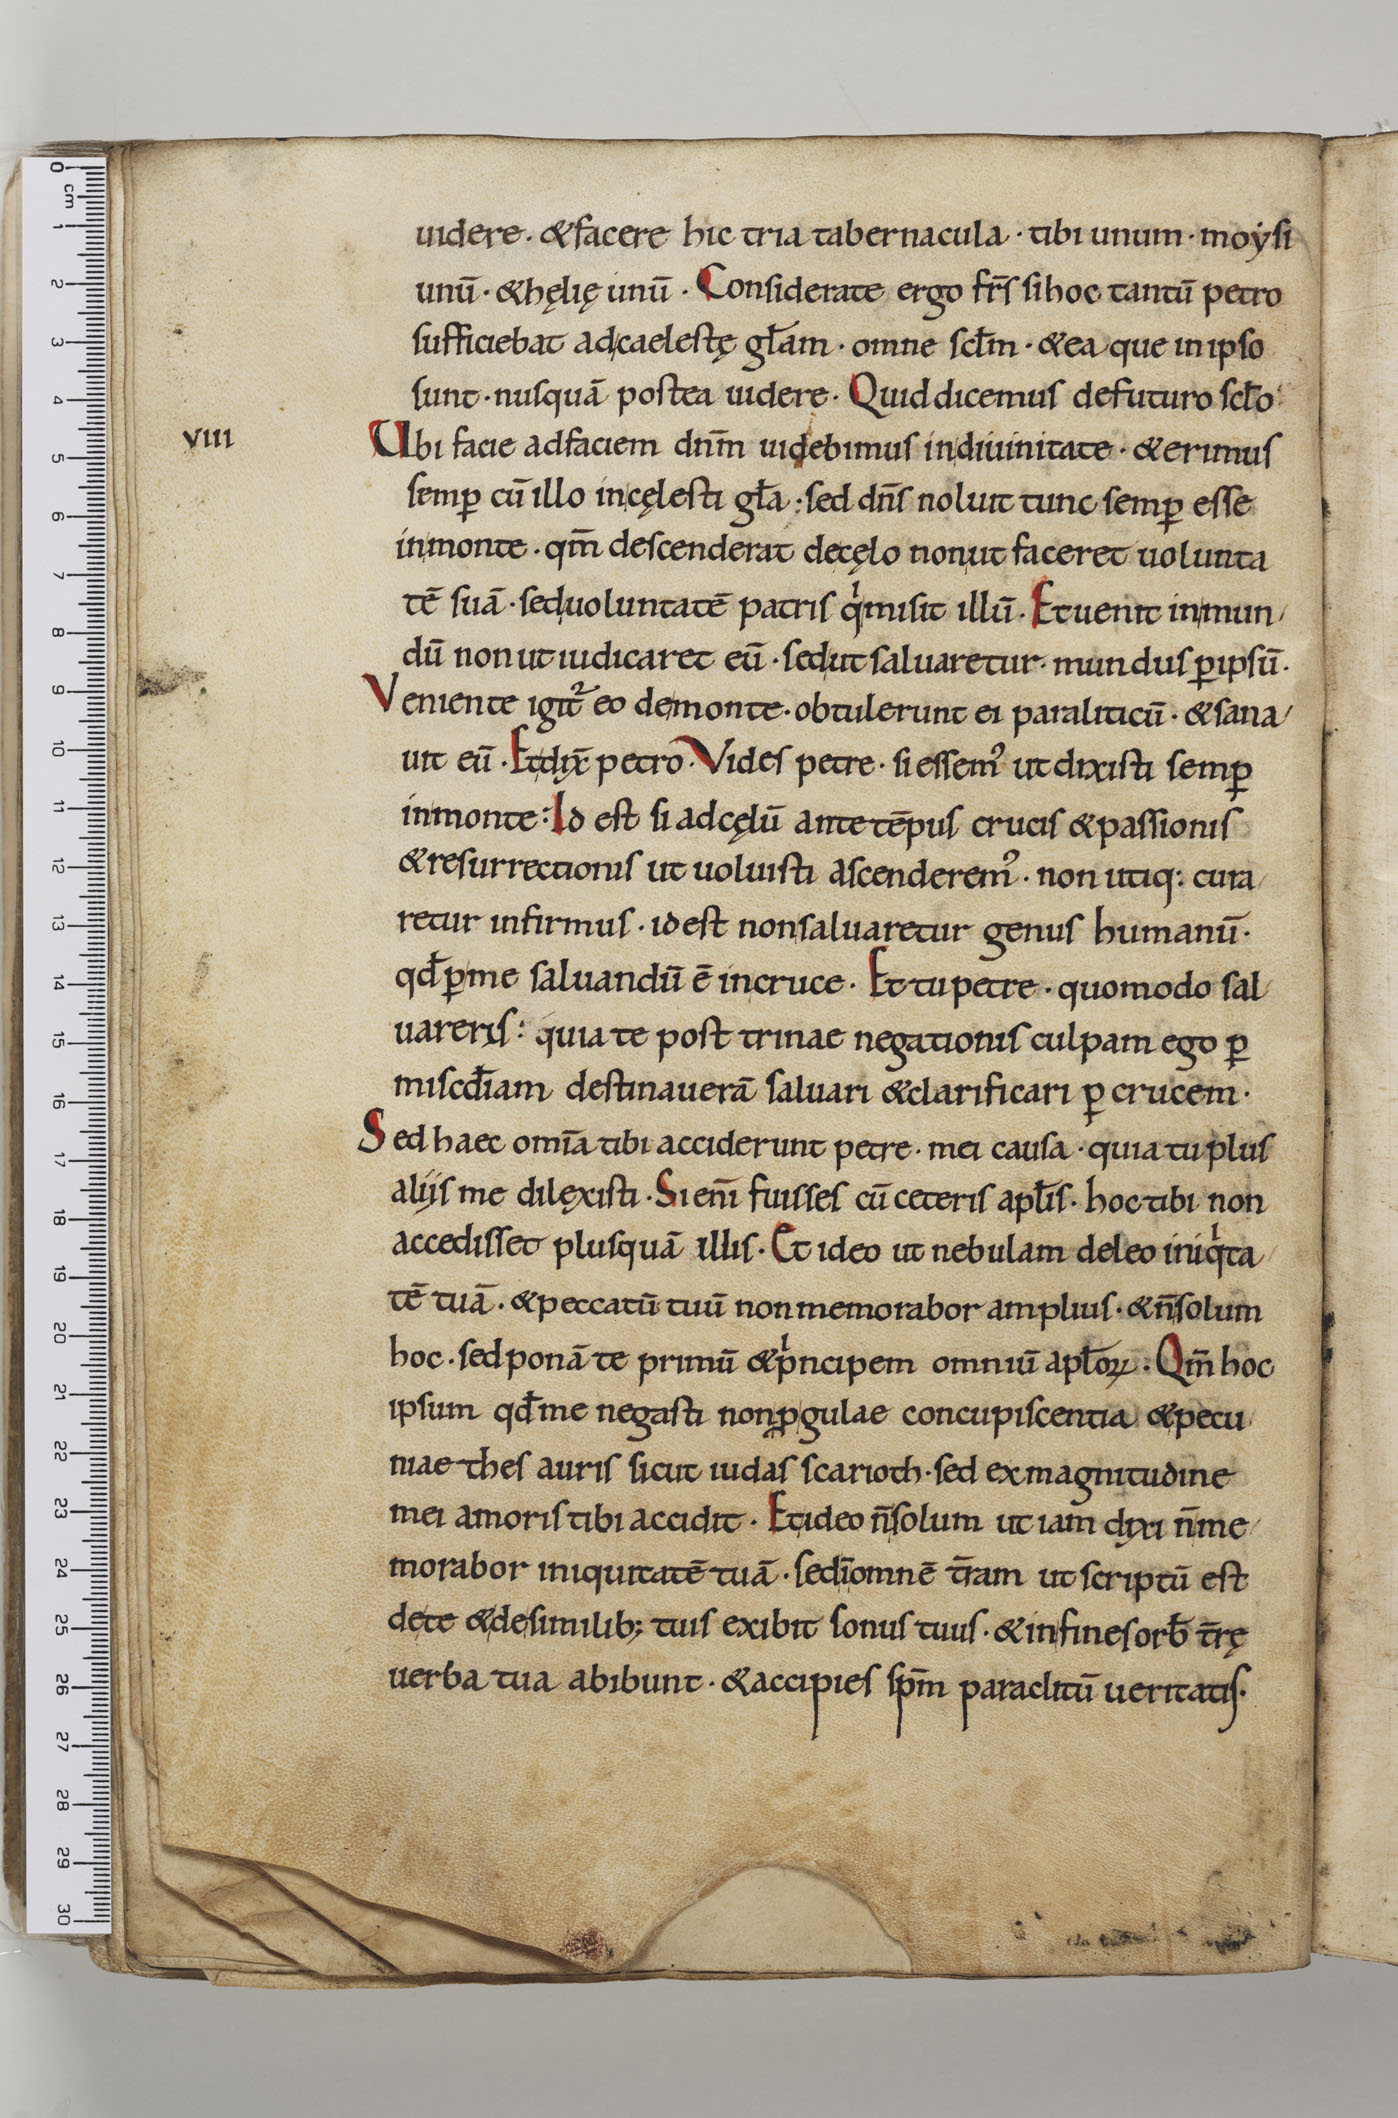 uidere · & facere hic tria tabernacula · tibi unum · moẏsi
unū · & hęlię unū · Considerate ergo fr̄s si hoc tantū petro
sufficiebat ad caelestę gl̄am · omne scl̄m · & ea que in ipso
sunt · nusquā postea uidere · Quid dicemus de futuro scl̄o
VIII Ubi facie ad faciem dn̄m uidebimus in diuinitate · & erimus
semꝑ cū illo in cęlesti gl̄a : sed dn̄s noluit tunc semꝑ esse
in monte · qm̄ descenderat de cęlo non ut faceret uolunta
tē suā · sed uoluntatē patris qͥ misit illū · Et uenit in mun
dū non ut iudicaret eū · sed ut saluaretur · mundus ꝑ ipsū ·
Veniente igit᷑ eo de monte · obtulerunt ei paraliticū · & sana
uit eū · Et dix̄ petro · Vides petre · si essemꝰ ut dixisti semꝑ
in monte : Id est si ad cęlū ante tēpus crucis & passionis
& resurrectionis ut uoluisti ascenderemꝰ · non utiq: cura
retur infirmus · id est non saluaretur genus humanū ·
qd̄ ꝑ me saluandū ē in cruce · Et tu petre · quomodo sal
uareris : quia te post trinae negationis culpam ego ꝑ
miscd̄iam destinauerā saluari & clarificari ꝑ crucem ·
Sed haec om̄ia tibi acciderunt petre · mei causa · quia tu plus
alijs me dilęxisti · Si enī fuisses cū ceteris apl̄is · hoc tibi non
accedisset plusquā illis · Et ideo ut nebulam deleo iniqͥta
tē tuā · & peccatū tuū non memorabor amplius · & n̄ solum
hoc · sed ponā te primū & pͥncipem omniū apl̄oꝝ · Qm̄ hoc
ipsum qd̄ me negasti non ꝓ gulae concupiscentia & pecu
niae thes auris sicut iudas scarioth · sed ex magnitudine
mei amoris tibi accidit · Et ideo n̄ solum ut iam dixi n̄ me
morabor iniquitatē tuā · sed ī omnē tr̄am ut scriptū est
de te & de similib; tuis exibit sonus tuus · & in fines orb̄ tr̄ę
uerba tua abibunt · & accipies sp̄m paraclitū ueritatis ·